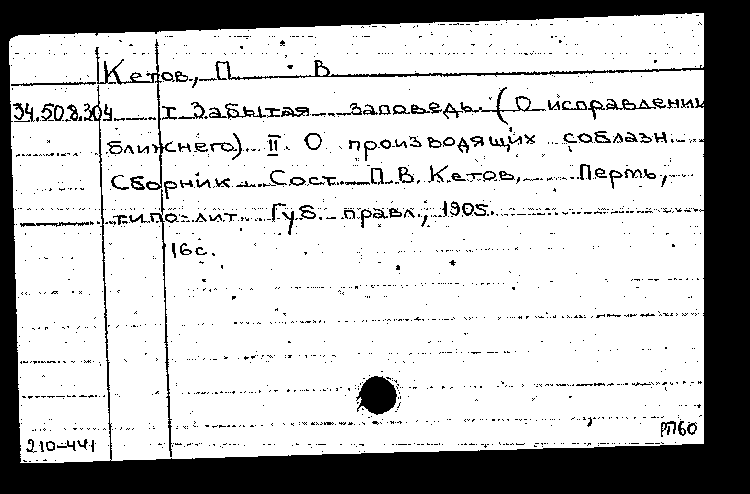 Кетов, П. В.
34.508.304 т Забытая заповедь. (О исправлении
ближнего) II. О производящих соблазн.
Сборник. Сост. П.В. Кетов. Пермь,
типо-лит. Губ. правл., 1905.
16с.
210-441
РП60